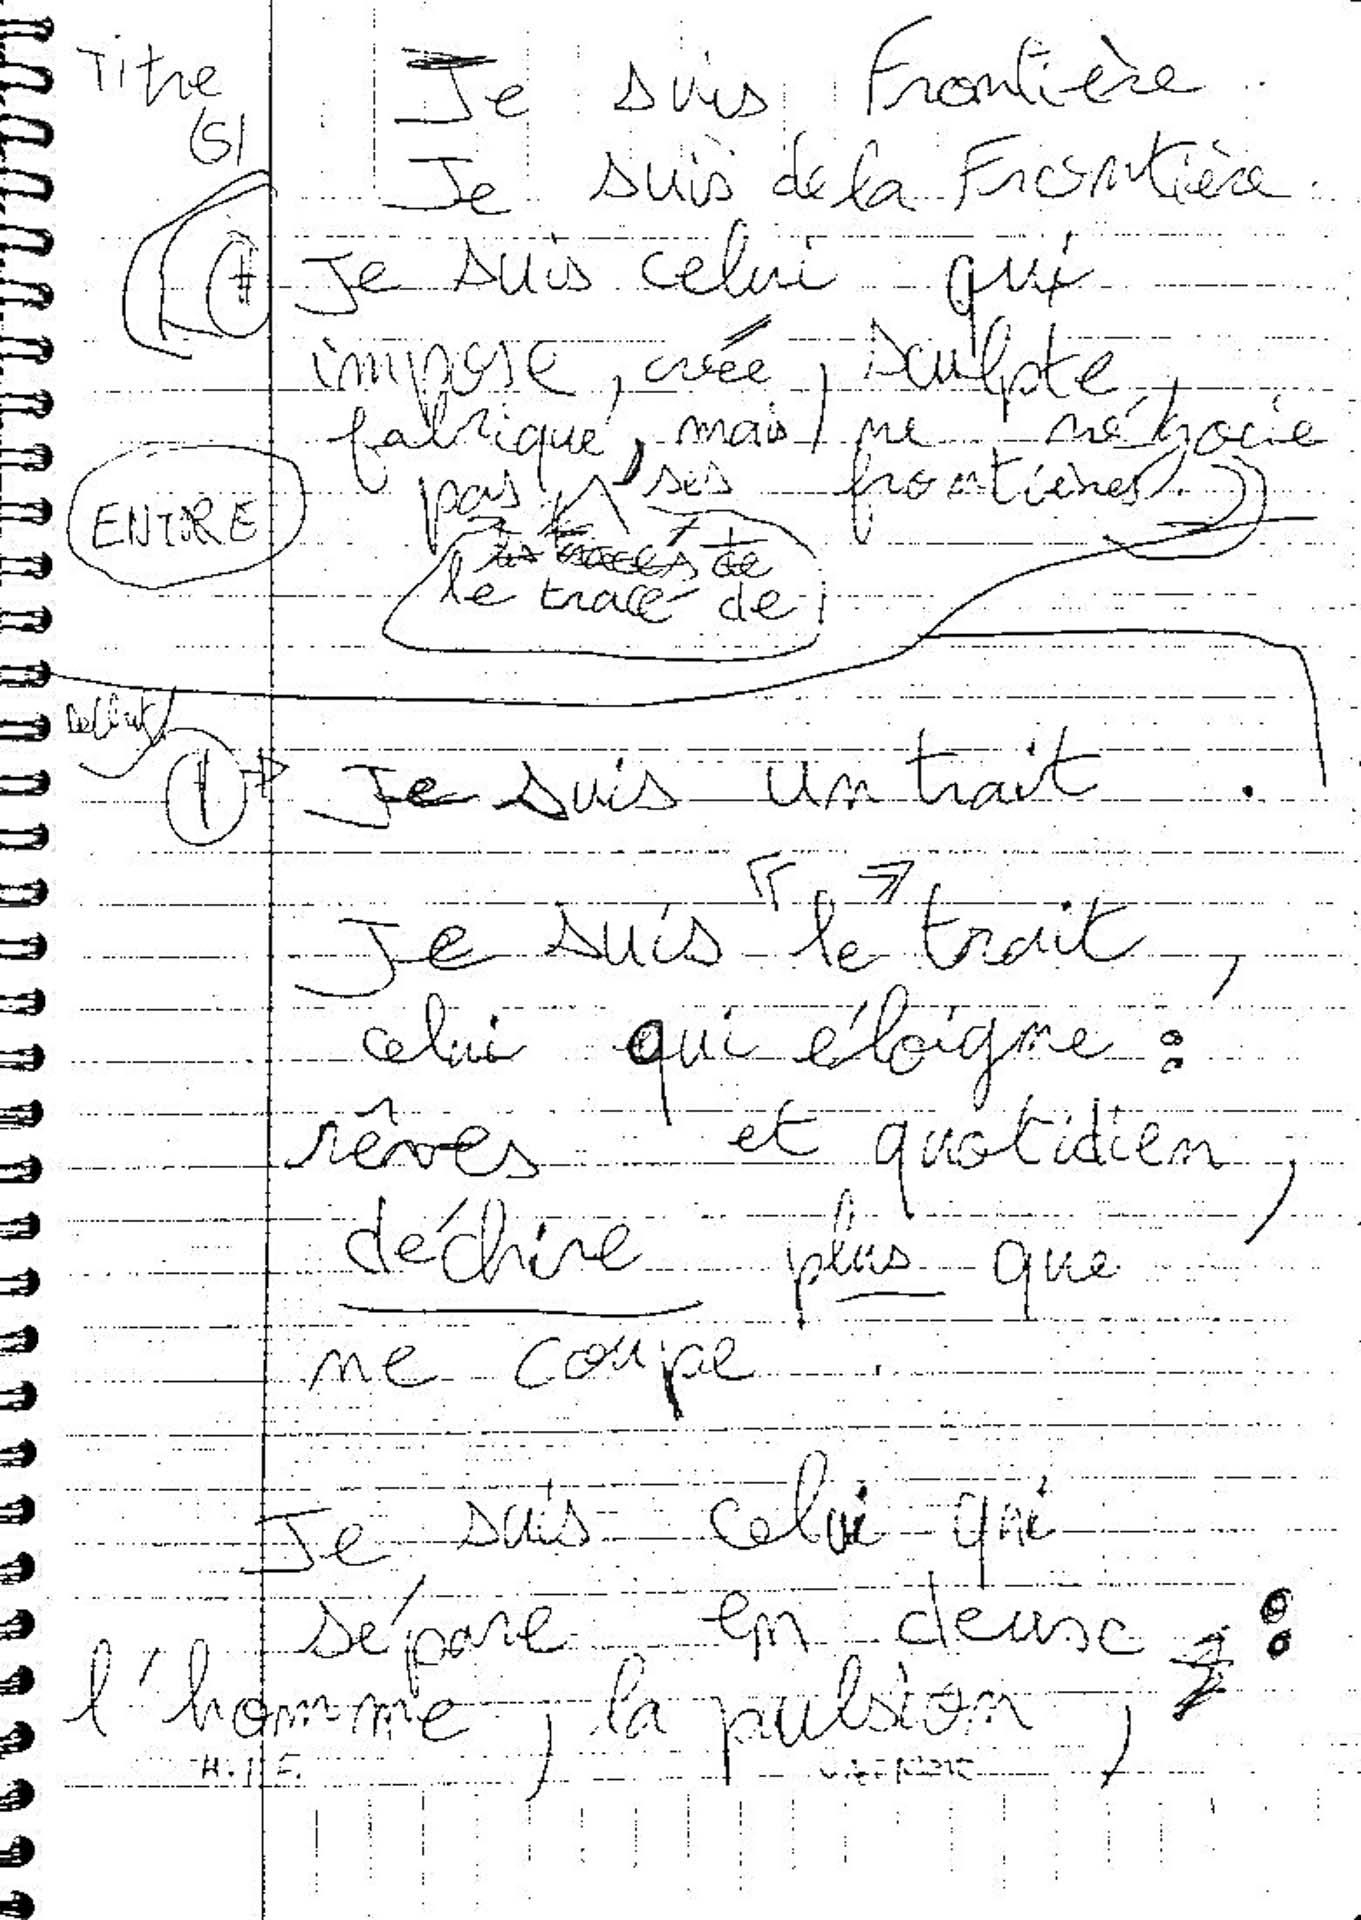 Titre
(s)
Je suis Frontière.
Je suis de la Frontière.
Je suis celui qui
impose, créé, sculpte,
fabrique, mais, ne négocie
pas ses frontières.
ENTRE
le tracé de
Début
1 Je suis un trait.
Je suis "le" trait,
celui qui éloigne :
rêves et quotidien,
déchire plus que
ne coupe.
Je suis celui qui
sépare en deux :
l'homme, la pulsion,